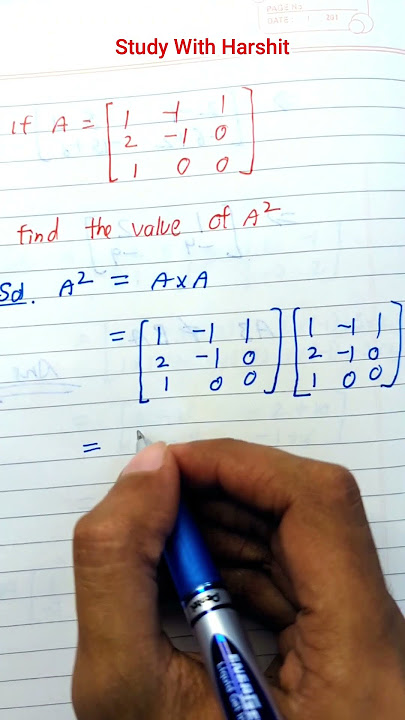 PAGE NO.
DATE: / / 201
Study With Harshit
If A = [ 1 -1 1
2 -1 0
1 0 0 ]
find the value of A²
Sol. A² = A×A
= [ 1 -1 1 ] [ 1 -1 1 ]
[ 2 -1 0 ] [ 2 -1 0 ]
[ 1 0 0 ] [ 1 0 0 ]
=